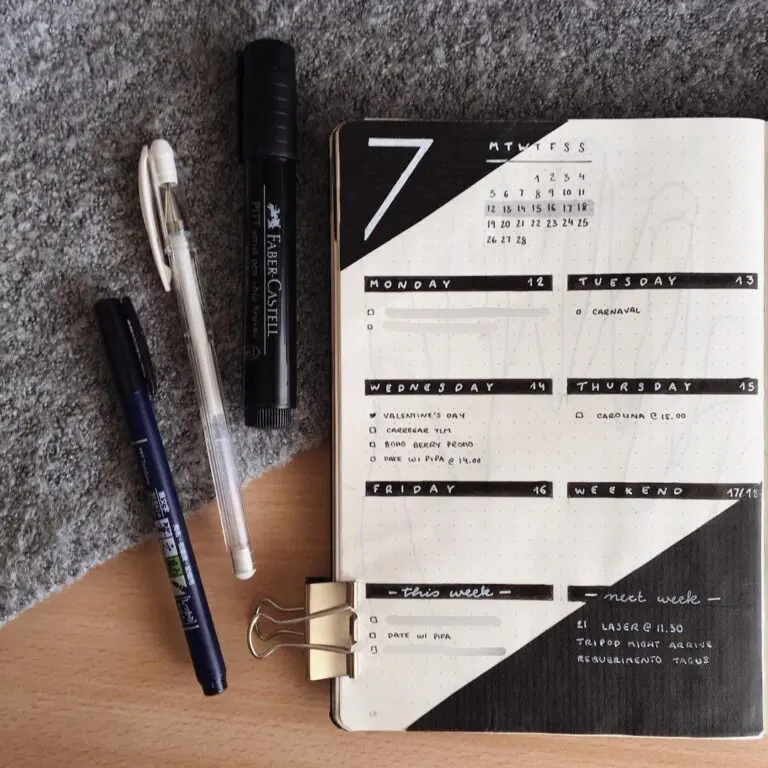 FABER-CASTELL
PITT
7
M T W T F S S
1 2 3 4
5 6 7 8 9 10 11
12 13 14 15 16 17 18
19 20 21 22 23 24 25
26 27 28
MONDAY 12
TUESDAY 13
CARNAVAL
WEDNESDAY 14
VALENTINE'S DAY
CARREGAR TLM
BOHO BERRY PROMO
DATE W/ PIPA @ 14.00
THURSDAY 15
CAROLINA @ 15.00
FRIDAY 16
WEEKEND 17/18
- this week -
DATE W/ PIPA
- next week -
21 LASER @ 11.30
TRIPOD MIGHT ARRIVE
REQUERIMENTO TAGUS